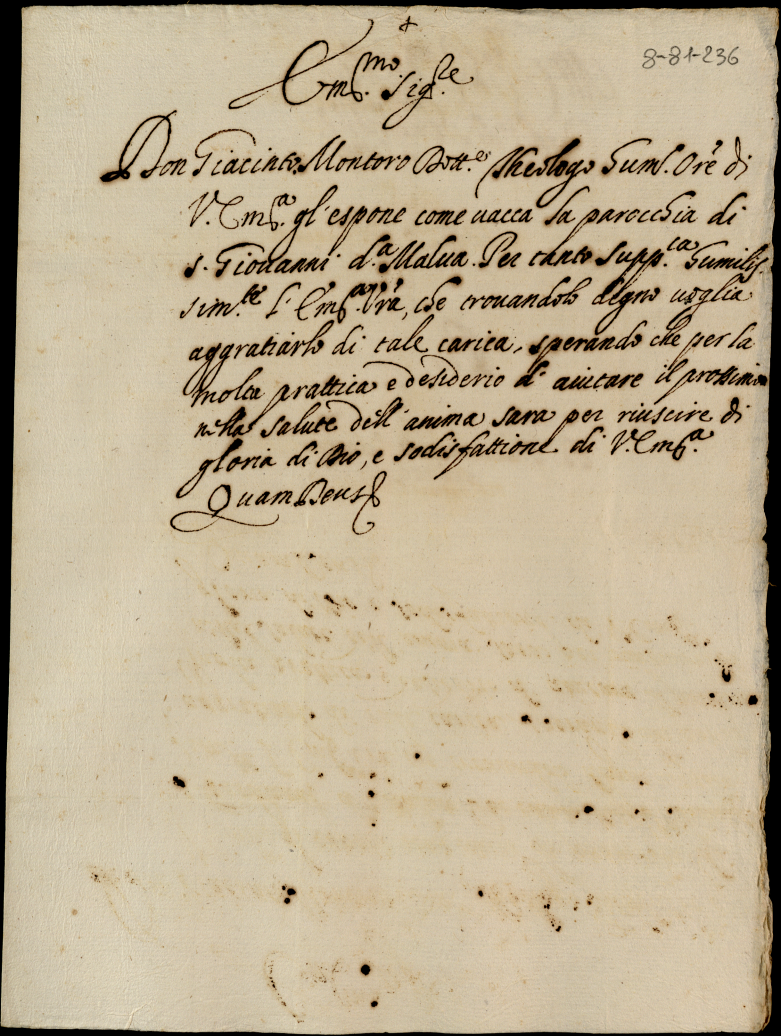 +
8-81-236
Em.mo Sig.re
Don Giacinto Montoro Dott.e Theologo Humil. Ore di
V. Em.a gl'espone come vacca la parocchia di
S. Giovanni d.a Malva. Per tanto supp.ca humilis-
sim.te l'Em.a Vra, che trovandolo degno voglia
aggratiarlo di tale carica, sperando che per la
molta prattica e desiderio di aiutare il prossimo
nella salute dell'anima sara per riuscire di
gloria di Dio, e sodisfattione di V. Em.a
Quam Deus